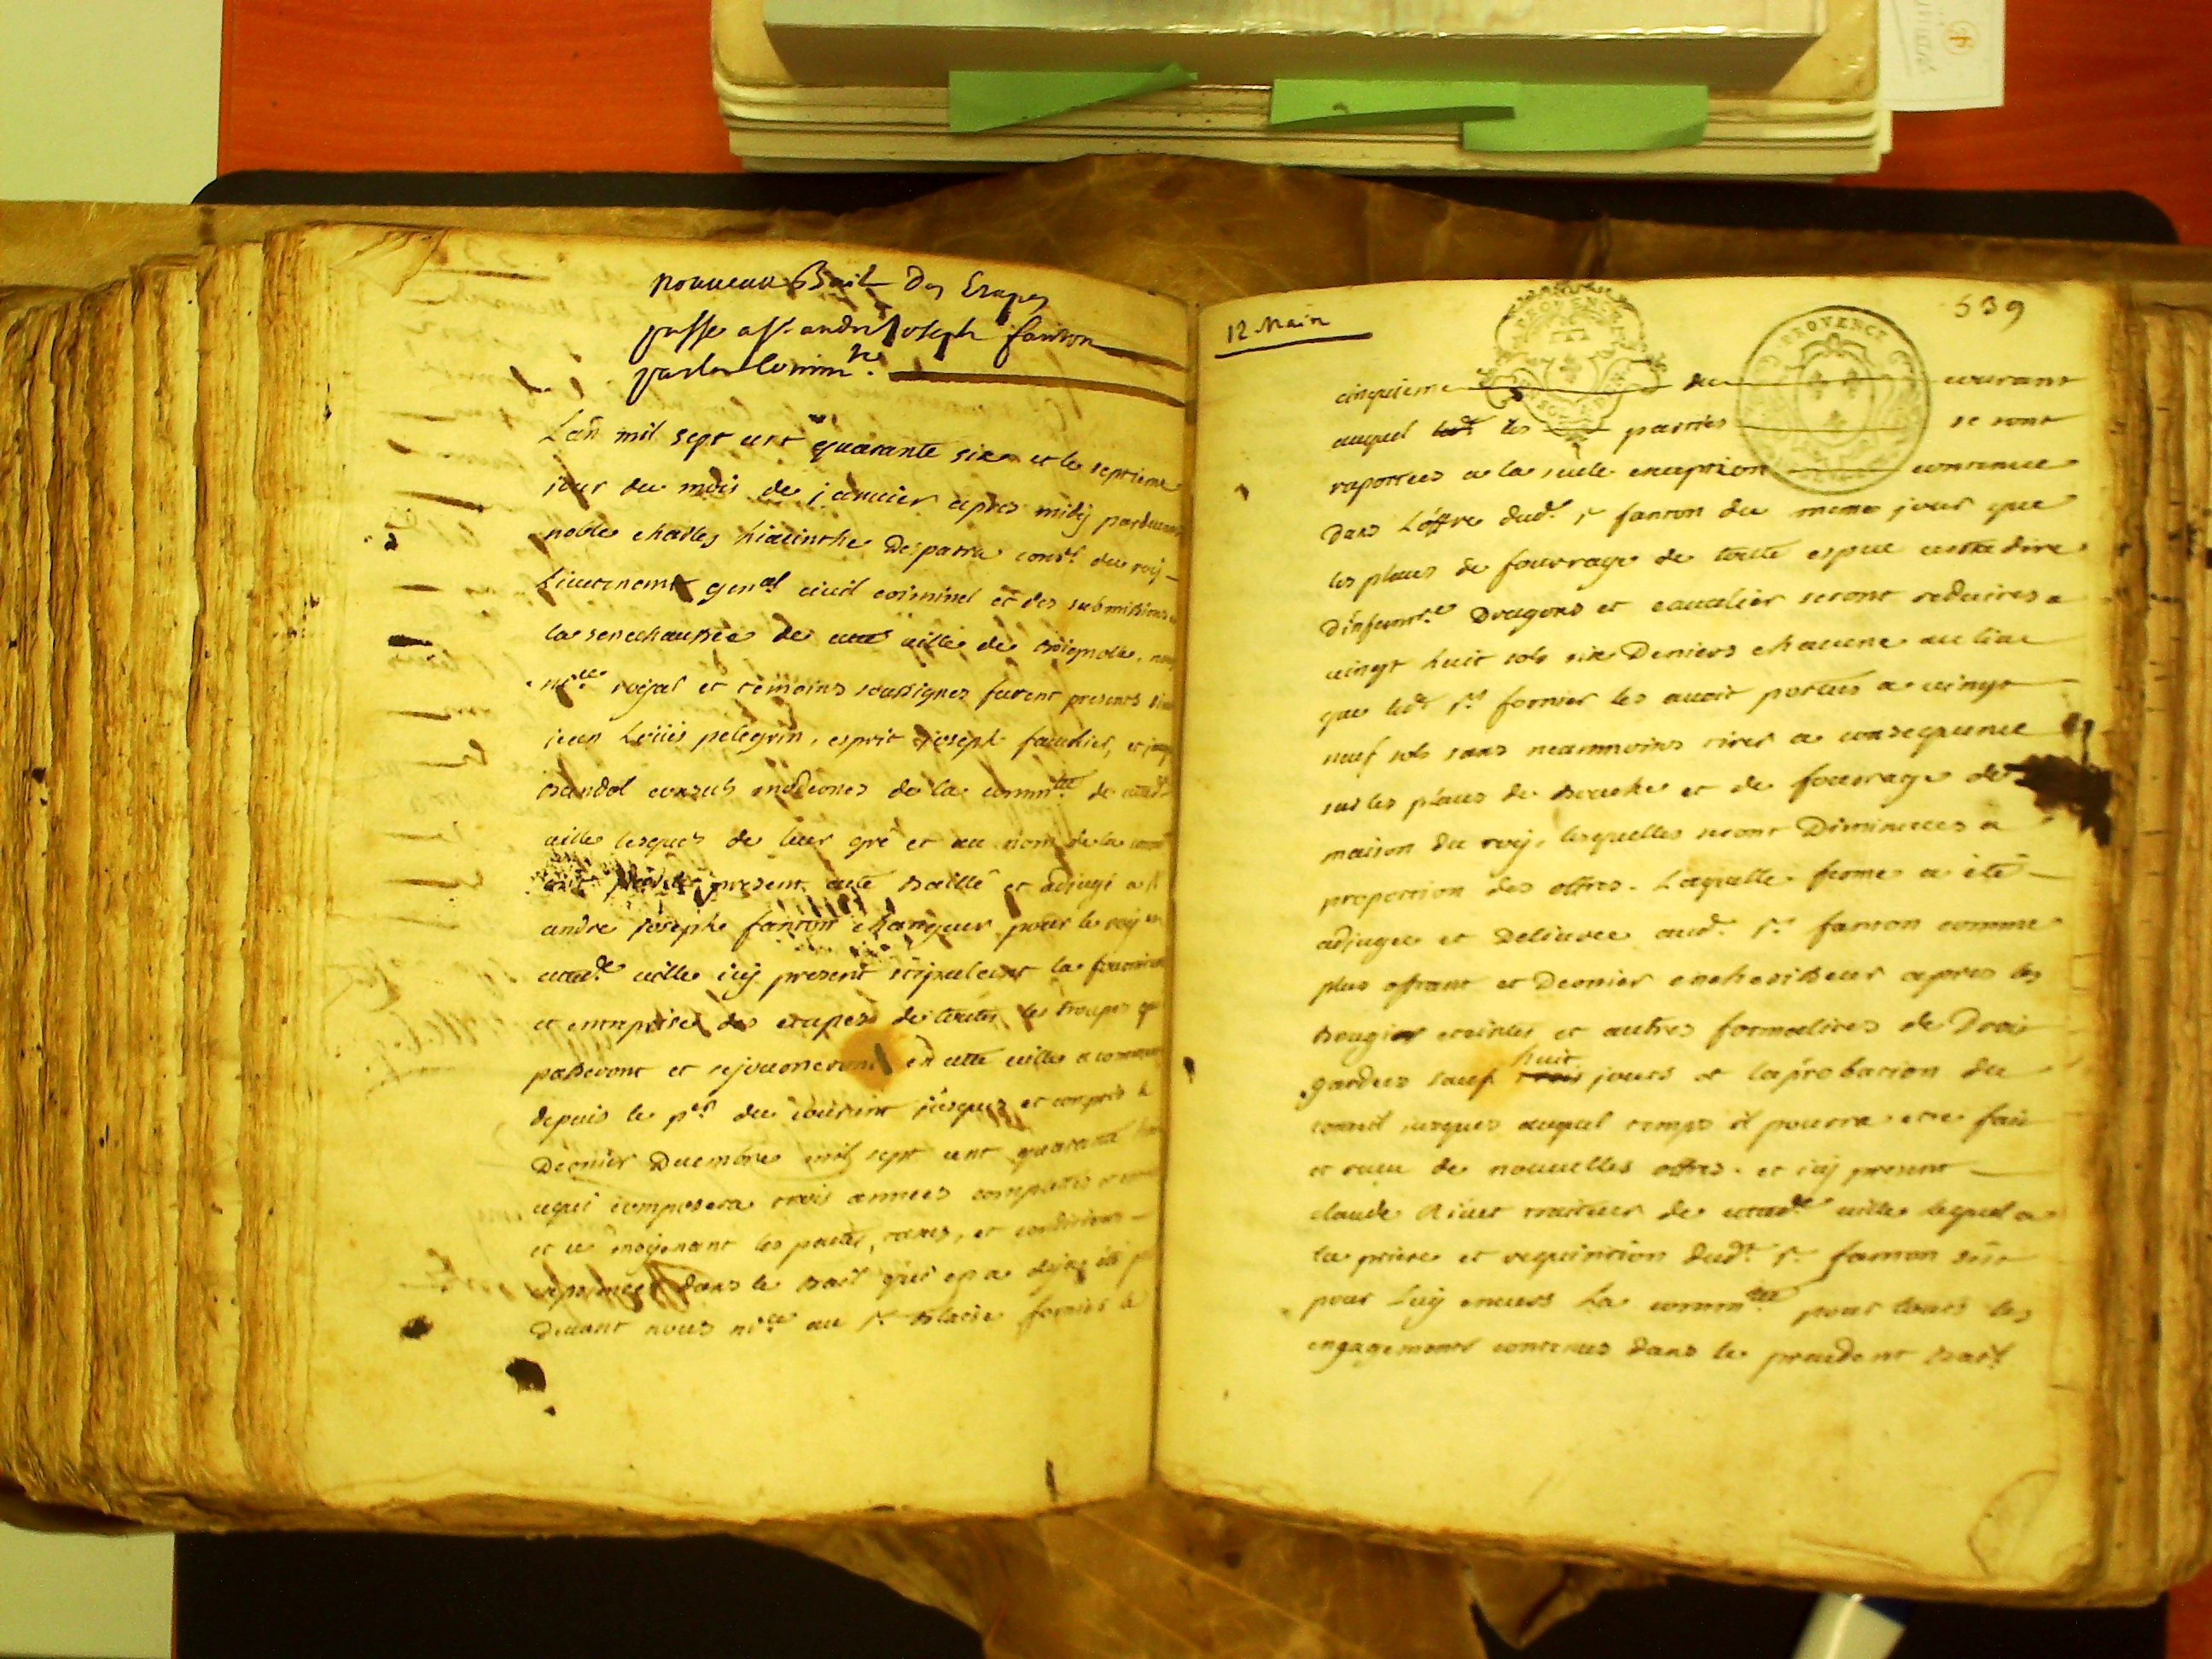 nouveau Bail Des Etapes
passé a Sr. andré Joseph fanton
par la Commté.
L'an mil sept cent quarante six et le septieme
jour du mois de janvier apres midy pardevant
noble charles hiacinthe Desparra consr. du roy
Lieutenant genal civil criminel et des submissions
la senechaussée de cette ville de Brignolle, nous
nore. royal et temoins soussignes furent presents
jean Loüis pelegrin, esprit joseph faucher, et
Bandol consuls modernes de la commté de cette
ville lesquels de leur gré et au nom de la
ont present acte baillé et adjugé a Sr
andré joseph fanton changeur pour le roy en
cetted. ville icy present stipulant la fourniture
et entreprise des etapes de toutes les troupes qui
passeront et sejourneront en cette ville a commencer
depuis le per du courant jusques et compris le
Dernier Decembre mil sept cent quarante
cequi composera trois années complettes
et ce moyenant les pactes, et conditions
exprimées dans le bail qui en a dejea été
Devant nous nore au Sr Blaise fornier le
12 main
539
PROVENCE
cinquieme du courant
auquel led. les parties se sont
raportées a la seule exception contenue
dans L'offre dud. Sr fanton du meme jour que
les places de fourrage de toute espece cestadire
d'infante. Dragons et cavalier seront reduites a
vingt huit sols six Deniers chacune au lieu
que led. Sr fornier les avoit portées a vingt
neuf sols sans neammoins tirer a consequence
sur les places de bouche et de fourrage de
maison du roy, lesquelles seront Diminuées a
proportion des offres. Laquelle ferme a été
adjugée et Delivrée aud. Sr. fanton comme
plus offrant et Dernier encherisseur apres les
bougies eteintes et autres formalites de Droit
gardées sauf trois huit jours et laprobation du
conseil jusques auquel temps il pourra etre fait
et receu de nouvelles offres. et icy present
claude Rivet traiteur de cetted. ville lequel a
la priere et requisition dud. Sr fanton s'est
pour Luy envers La commté pour touts les
engagements contenus dans le precedent bail